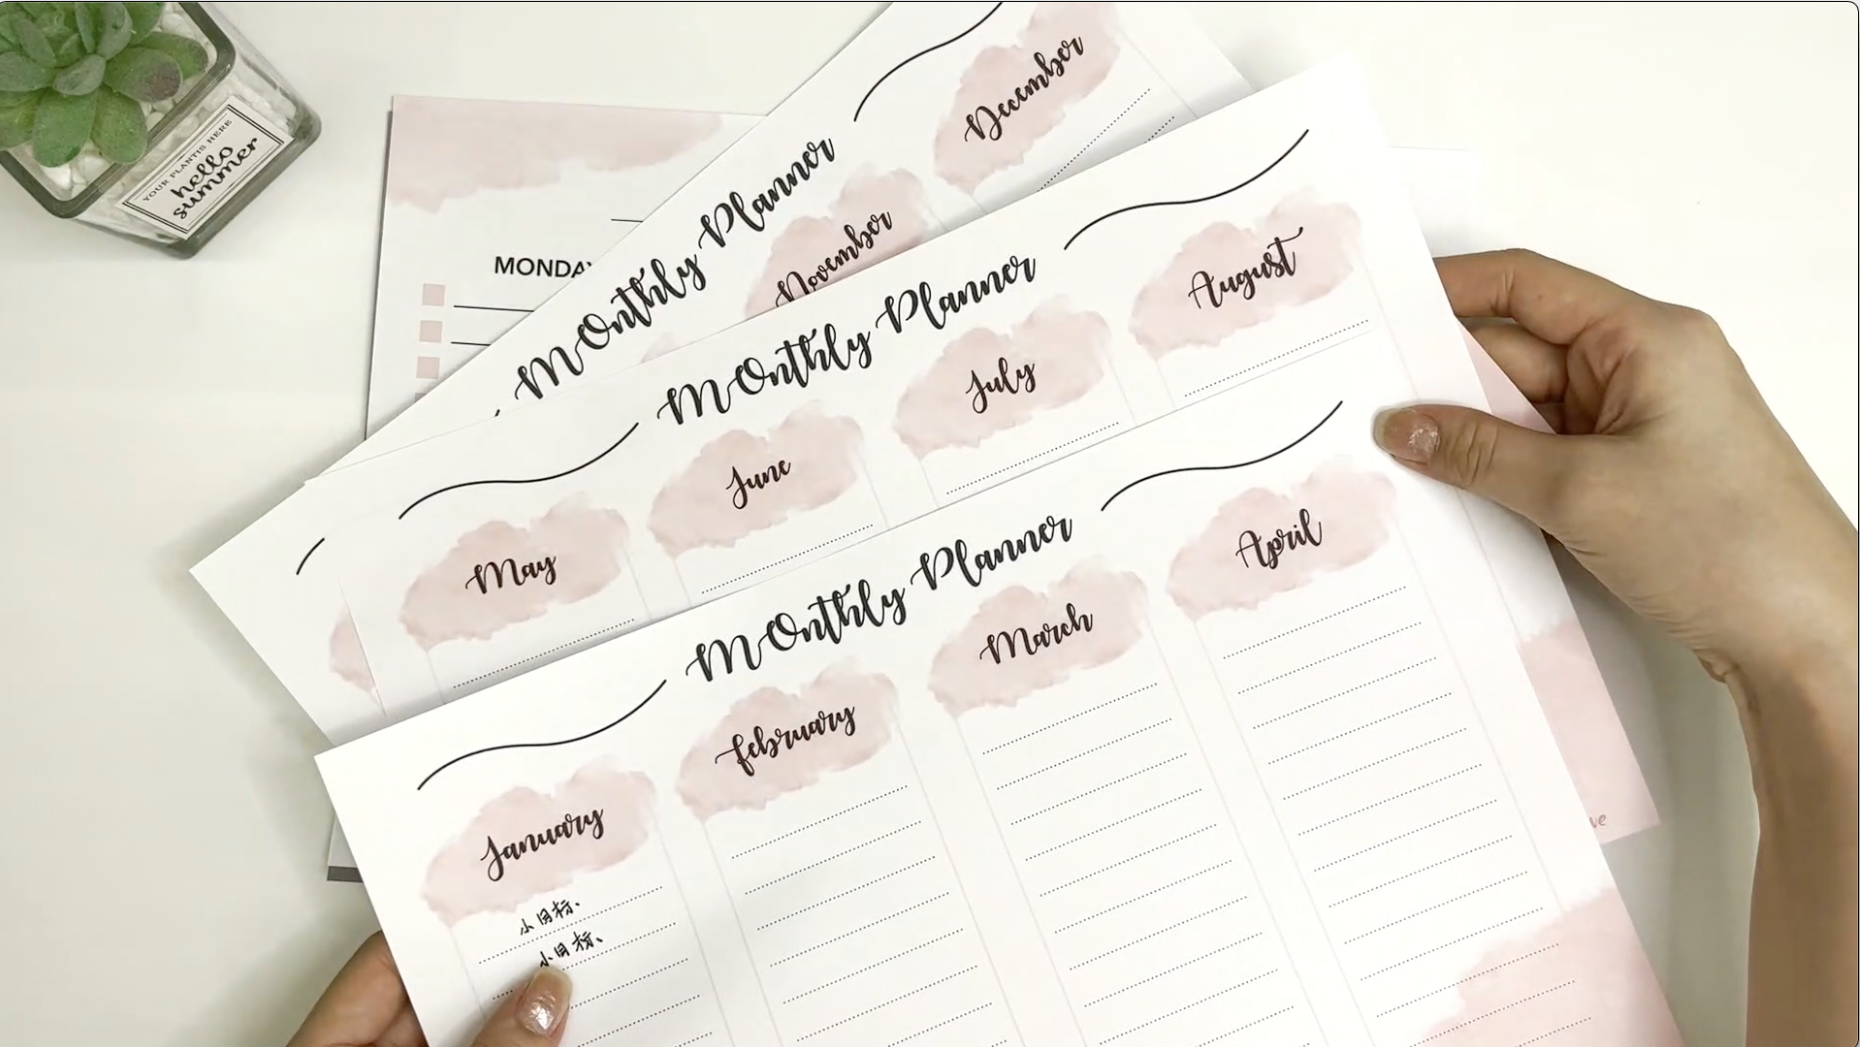 YOUR PLANT IS HERE
hello
summer
MONDAY
Monthly Planner
November
December
Monthly Planner
May
June
July
August
Monthly Planner
January
February
March
April
小目标、
小目标、